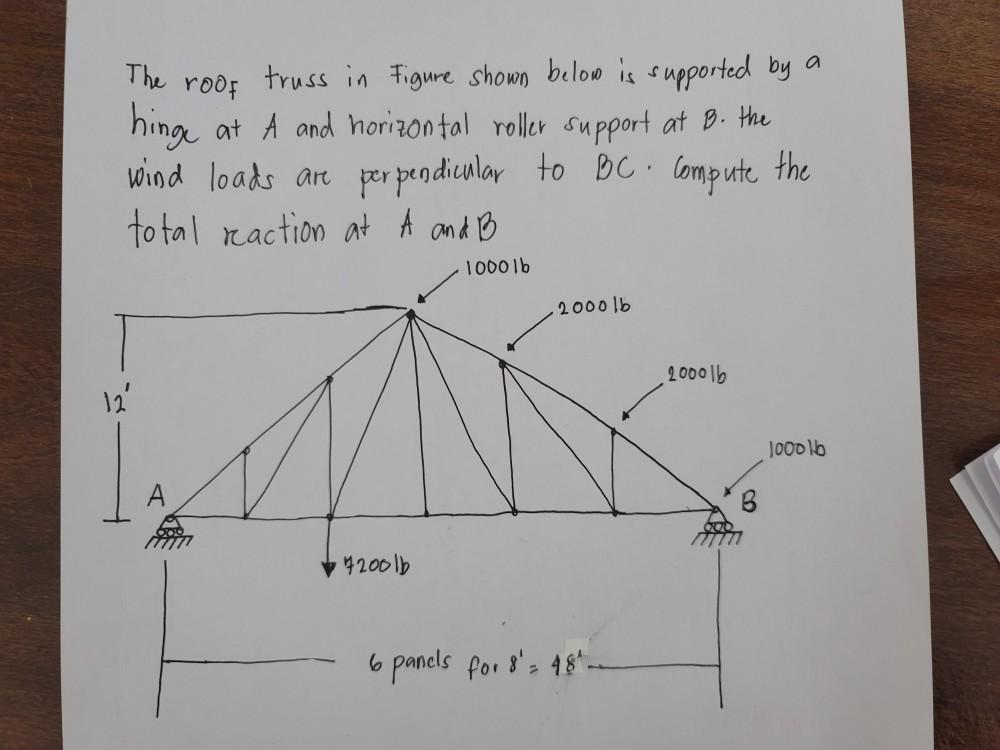 The roof truss in Figure shown below is supported by a
hinge at A and horizontal roller support at B. the
wind loads are perpendicular to BC. Compute the
total reaction at A and B
1000lb
2000lb
2000lb
12'
1000lb
A
B
7200lb
6 panels for 8' = 48'